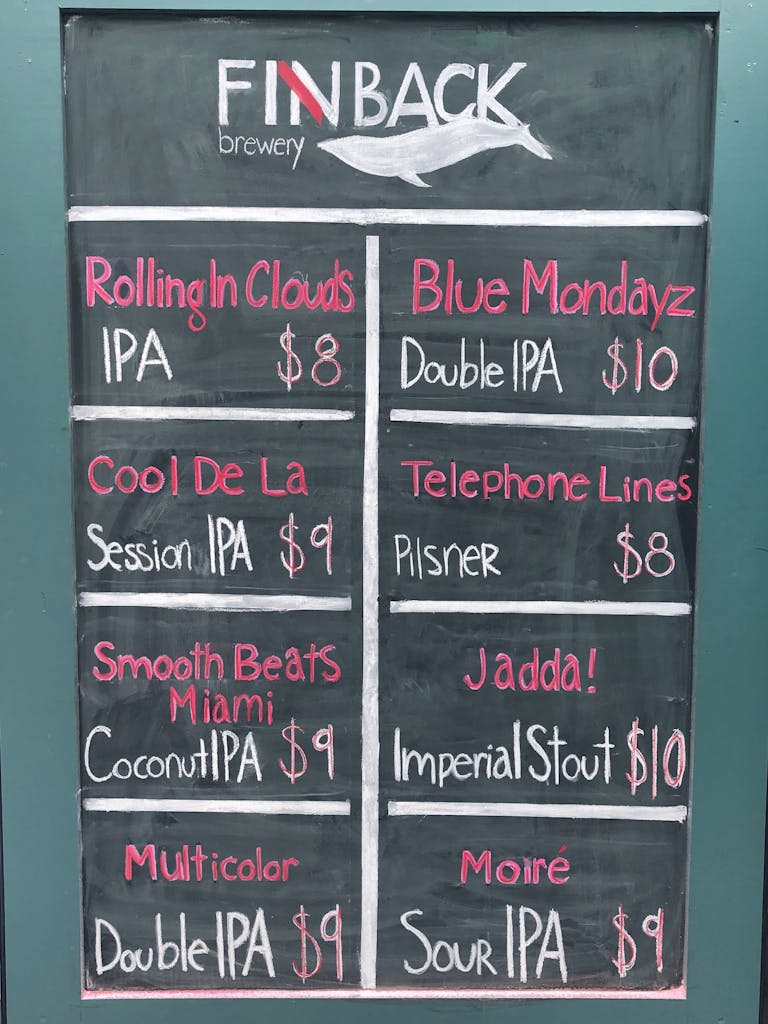 FINBACK
brewery
Rolling In Clouds
IPA $8
Blue Mondayz
Double IPA $10
Cool De La
Session IPA $9
Telephone Lines
Pilsner $8
Smooth Beats
Miami
Coconut IPA $9
Jadda!
Imperial Stout $10
Multicolor
Double IPA $9
Moiré
Sour IPA $9